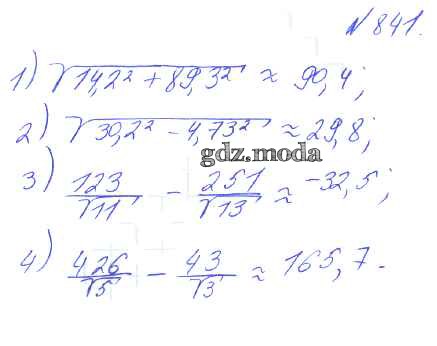 № 841.
1) √14,2² + 89,3² ≈ 90,4;
2) √30,2² - 4,73² ≈ 29,8;
gdz.moda
3) 123/√11 - 251/√13 ≈ -32,5;
4) 426/√5 - 43/√3 ≈ 165,7.